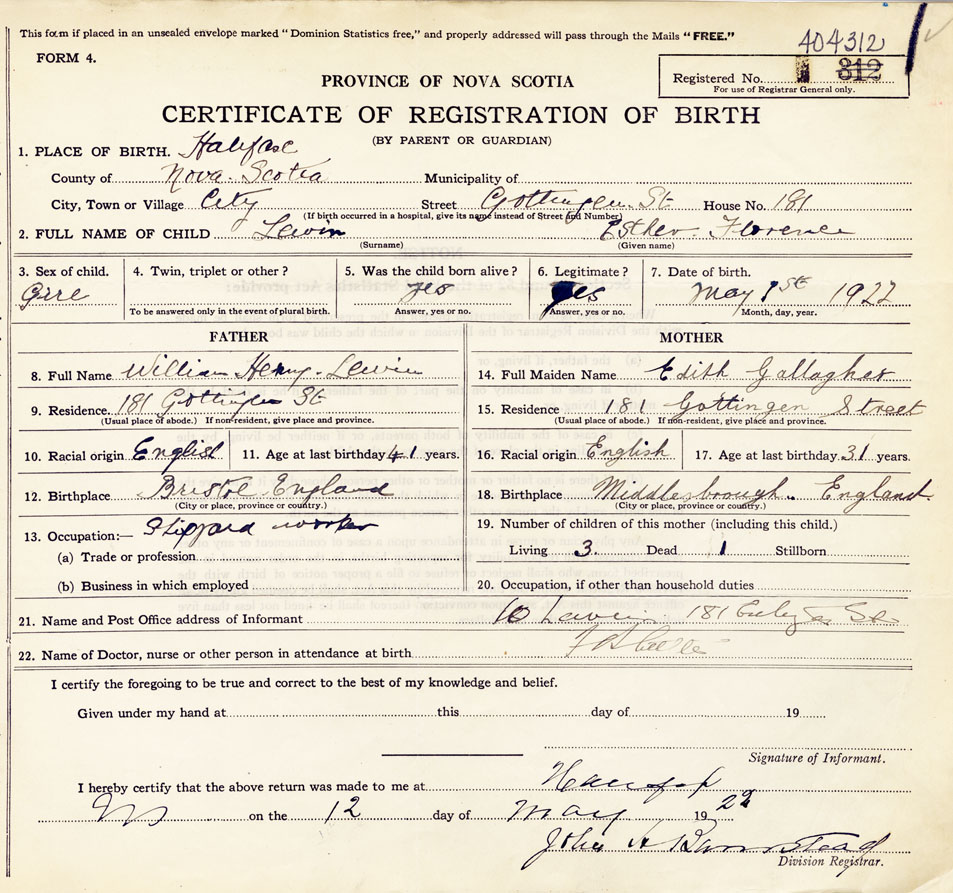 This form if placed in an unsealed envelope marked "Dominion Statistics free," and properly addressed will pass through the Mails "FREE."
404312
FORM 4.
Registered No. 312
For use of Registrar General only.
PROVINCE OF NOVA SCOTIA
CERTIFICATE OF REGISTRATION OF BIRTH
(BY PARENT OR GUARDIAN)
1. PLACE OF BIRTH. Halifax
County of Nova Scotia Municipality of
City, Town or Village City Street Gottingen St House No. 181
(If birth occurred in a hospital, give its name instead of Street and Number)
2. FULL NAME OF CHILD Lewin Esther Florence
(Surname) (Given name)
3. Sex of child. 4. Twin, triplet or other? 5. Was the child born alive? 6. Legitimate? 7. Date of birth.
Girl yes yes May 1st 1922
To be answered only in the event of plural birth. Answer, yes or no. Answer, yes or no. Month, day, year.
FATHER MOTHER
8. Full Name William Henry Lewin 14. Full Maiden Name Edith Gallagher
9. Residence. 181 Gottingen St 15. Residence 181 Gottingen Street
(Usual place of abode.) If non-resident, give place and province. (Usual place of abode.) If non-resident, give place and province.
10. Racial origin English 11. Age at last birthday 41 years. 16. Racial origin English 17. Age at last birthday 31 years.
12. Birthplace Bristol England 18. Birthplace Middlesbrough. England
(City or place, province or country.) (City or place, province or country.)
13. Occupation:— Shipyard worker 19. Number of children of this mother (including this child.)
(a) Trade or profession Living 3. Dead 1 Stillborn
(b) Business in which employed 20. Occupation, if other than household duties
21. Name and Post Office address of Informant Lewin 181 St
22. Name of Doctor, nurse or other person in attendance at birth
I certify the foregoing to be true and correct to the best of my knowledge and belief.
Given under my hand at this day of 19
Signature of Informant.
I hereby certify that the above return was made to me at Halifax
NS on the 12 day of May 1922
John A Barnstead
Division Registrar.